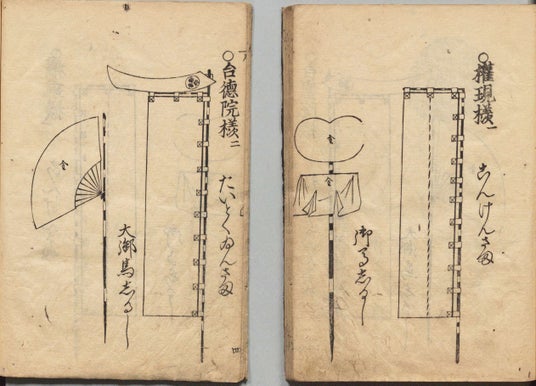 ○權現様 一
ごんけんさま
御馬志るし
金
金
○台徳院様 二
たいとくゐんさま
大御馬志るし
金